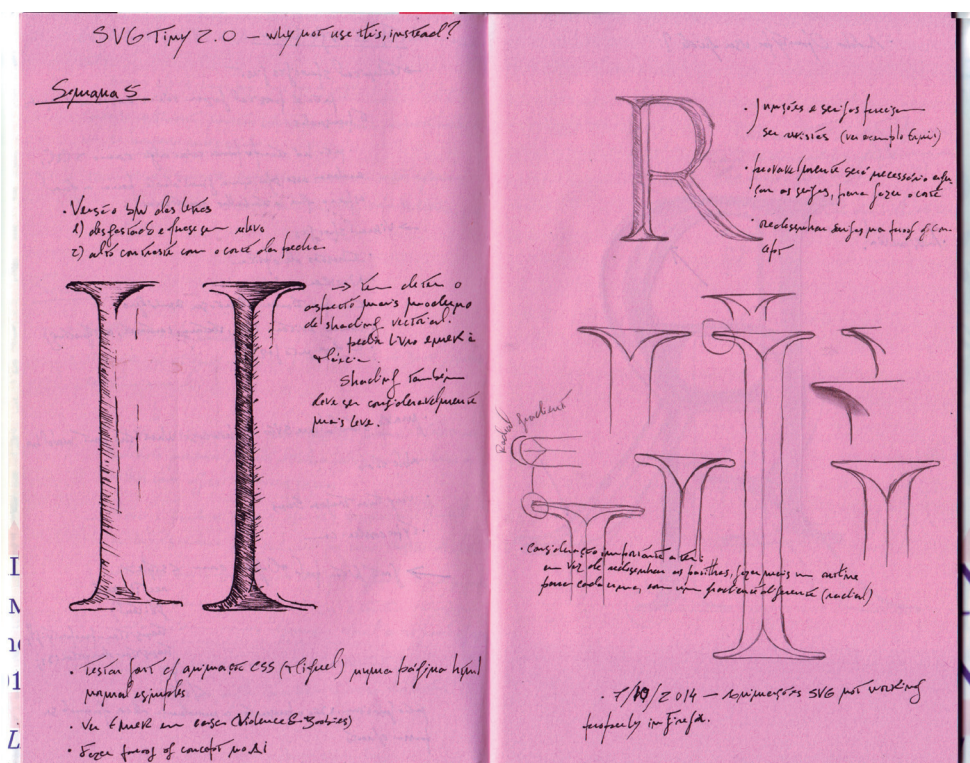 SVG Tiny 2.0 – why not use this, instead?
Semana 5
· Versão b/w das letras
1) desgastadas e quase sem relevo
2) alto contraste com o corte da pedra.
→ tem de ter o
aspecto mais moderno
de shading vectorial.
pedir livro
Shading também
deve ser consideravelmente
mais leve.
· Testar font c/ animação CSS (+ligeiro) numa página html
normal e simples
· Ver em casa (Violence & Bodies)
· Fazer proof of concept no Ai
· Junções e serifas precisam
ser revistas (ver exemplo)
· provavelmente será necessário
as serifas, para fazer o corte
· redesenhar serifas pra proof of con-
cept
Radial Gradient
· consideração importante a ter:
em vez de redesenhar as, fazer mais um outline
para cada uma, com um gradiente diferente (radial)
· 7/10/2014 – Animações SVG not working
properly in Firefox.